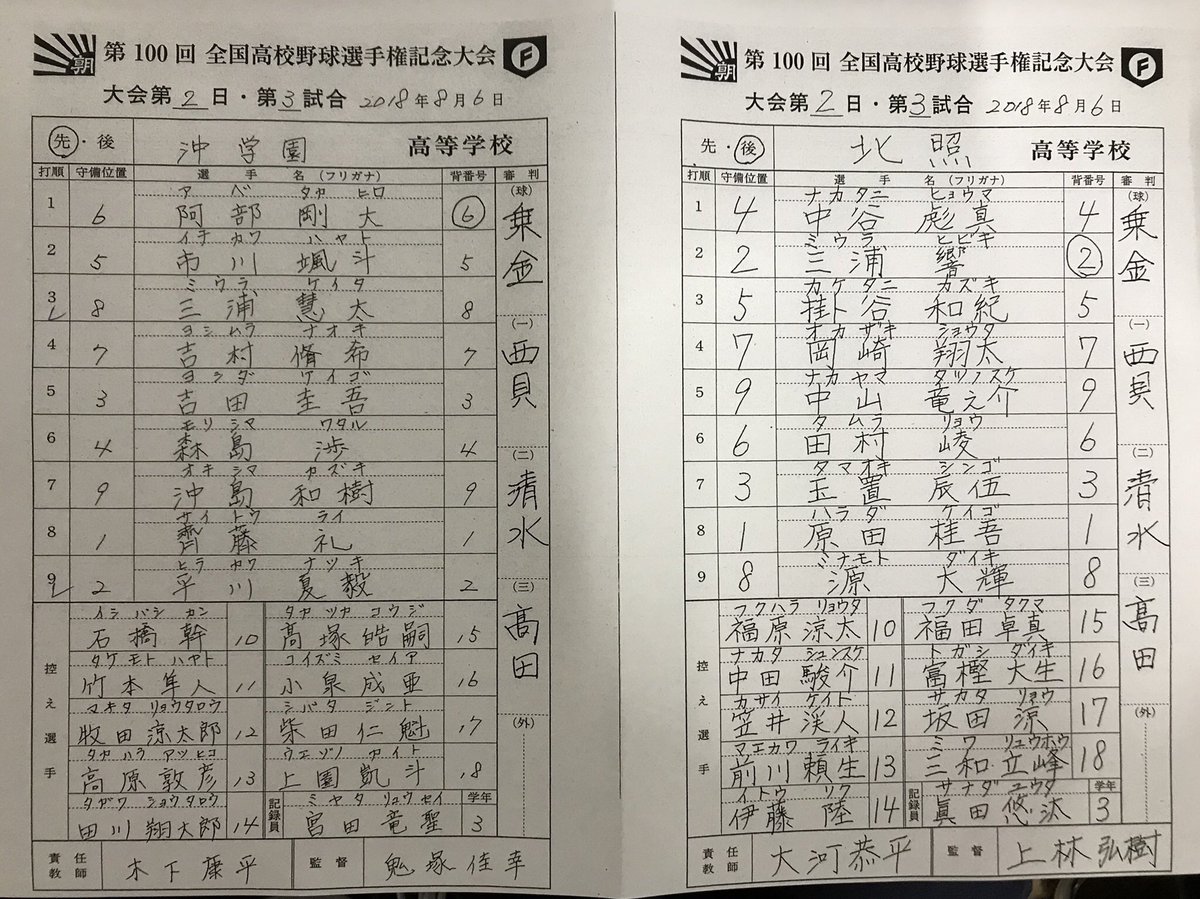 朝
第100回 全国高校野球選手権記念大会
F
大会第2日・第3試合 2018年8月6日
先・後 沖学園 高等学校
打順 守備位置 選手名(フリガナ) 背番号 審判
アベ タカヒロ
1 6 阿部 剛大 6
イチカワ ハヤト
2 5 市川 颯斗 5
ミウラ ケイタ
3 8 三浦 慧太 8
ヨシムラ ナオキ
4 7 吉村 脩希 7
ヨシダ ケイゴ
5 3 吉田 圭吾 3
モリシマ ワタル
6 4 森島 渉 4
オキシマ カズキ
7 9 沖島 和樹 9
サイトウ ライ
8 1 齊藤 礼 1
ヒラカワ ナツキ
9 2 平川 夏毅 2
(球) 乗金
(一) 西貝
(二) 清水
(三) 高田
(外)
控え選手
イシバシ カン タカツカ コウジ
石橋幹 10 髙塚皓嗣 15
タケモト ハヤト コイズミ セイア
竹本隼人 11 小泉成亜 16
マキタ リョウタロウ シバタ ジント
牧田涼太郎 12 柴田仁魁 17
タカハラ アツヒコ ウエゾノ カイト
高原敦彦 13 上園凱斗 18
タガワ ショウタロウ ミヤタ リュウセイ 学年
田川翔太郎 14 記録員 宮田竜聖 3
責任教師 木下康平 監督 鬼塚佳幸
朝
第100回 全国高校野球選手権記念大会
F
大会第2日・第3試合 2018年8月6日
先・後 北照 高等学校
打順 守備位置 選手名(フリガナ) 背番号 審判
ナカタニ ヒョウマ
1 4 中谷 彪真 4
ミウラ ヒビキ
2 2 三浦 響 2
カケタニ カズキ
3 5 桂谷 和紀 5
オカザキ ショウタ
4 7 岡崎 翔太 7
ナカヤマ タツノスケ
5 9 中山 竜之介 9
タムラ リョウ
6 6 田村 崚 6
タマオキ シンゴ
7 3 玉置 辰伍 3
ハラダ ケイゴ
8 1 原田 桂吾 1
ミナモト ダイキ
9 8 源 大輝 8
(球) 乗金
(一) 西貝
(二) 清水
(三) 高田
(外)
控え選手
フクハラ リョウタ フクダ タクマ
福原涼太 10 福田卓真 15
ナカタ シュンスケ トガシ ダイキ
中田駿介 11 富樫大生 16
カサイ ケイト サカタ リョウ
笠井渓人 12 坂田涼 17
マエカワ ライキ ミワ リュウホウ
前川頼生 13 三和立峰 18
イトウ リク サナダ ユウタ 学年
伊藤陸 14 記録員 眞田悠汰 3
責任教師 大河恭平 監督 上林弘樹